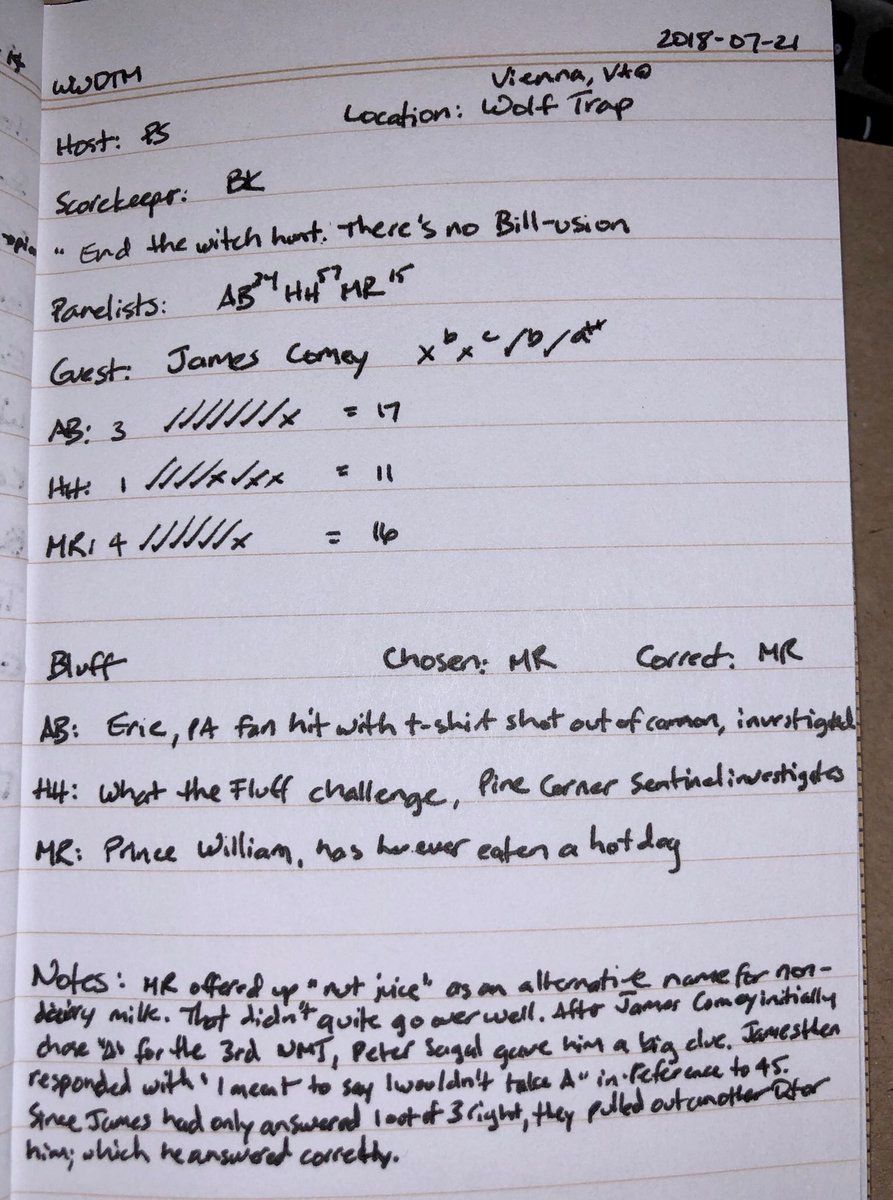 2018-07-21
WWDTM
Vienna, VA
Host: PS Location: Wolf Trap
Scorekeeper: BK
" End the witch hunt. There's no Bill-usion
Panelists: AB HH 57 MR 15
Guest: James Comey x b x c ✓ b ✓ a**
AB: 3 ✓✓✓✓✓✓✓x = 17
HH: 1 ✓✓✓✓x✓xx = 11
MR: 4 ✓✓✓✓✓✓x = 16
Bluff Chosen: MR Correct: MR
AB: Erie, PA fan hit with t-shirt shot out of cannon, investigated
HH: What the Fluff challenge, Pine Corner Sentinel investigates
MR: Prince William, has he ever eaten a hot dog
Notes: MR offered up "nut juice" as an alternative name for non-
dairy milk. That didn't quite go over well. After James Comey initially
chose "A" for the 3rd NMJ, Peter Sagal gave him a big clue. James then
responded with "I meant to say I wouldn't take A" in reference to 45.
Since James had only answered 1 out of 3 right, they pulled out another Q for
him; which he answered correctly.